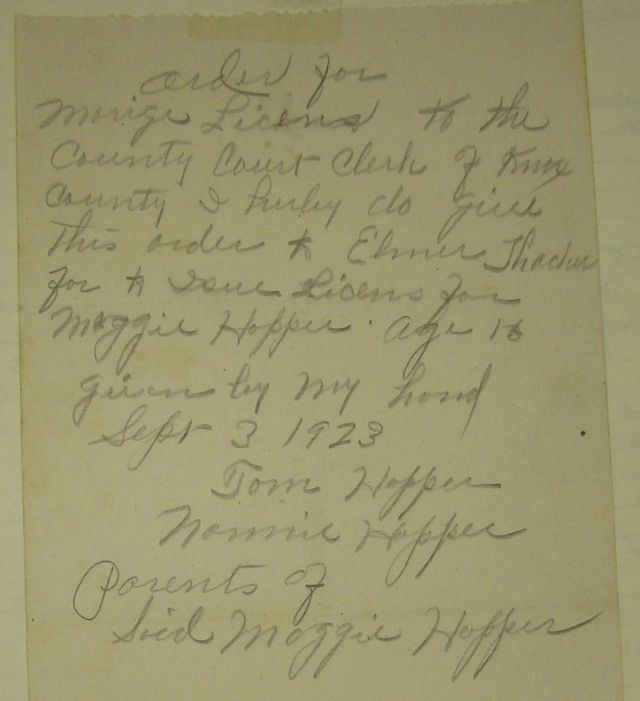 order for
Marige Licens to the
County Court Clerk of Knox
County I herby do give
this order to Elmer Thacker
for to Isue Licens for
Maggie Hopper. age 16
given by My hand
Sept 3 1923
Tom Hopper
Nannie Hopper
Parents of
Said Maggie Hopper